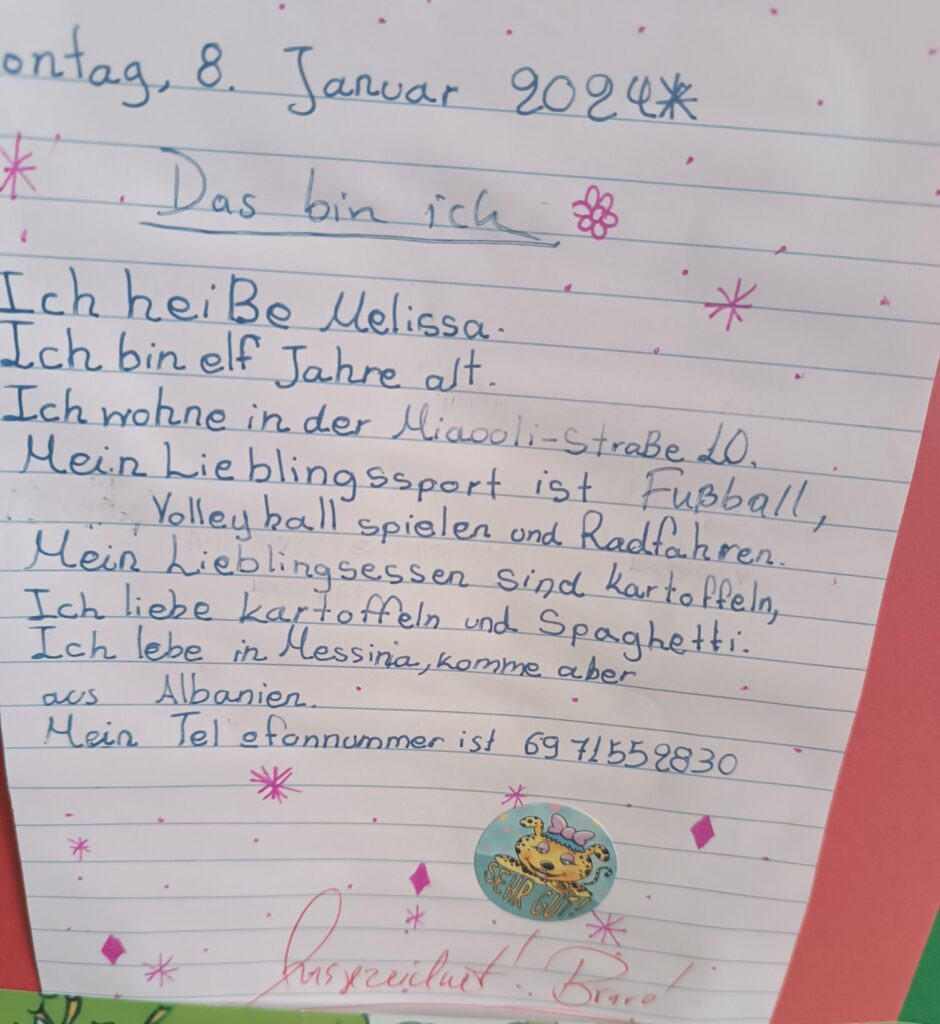 ontag, 8. Januar 2024
Das bin ich
Ich heiße Melissa.
Ich bin elf Jahre alt.
Ich wohne in der Miaooli-Straße 10.
Mein Lieblingssport ist Fußball,
Volleyball spielen und Radfahren.
Mein Lieblingsessen sind kartoffeln,
Ich liebe kartoffeln und Spaghetti.
Ich lebe in Messinia, komme aber
aus Albanien.
Mein Telefonnummer ist 6971552830
SEHR GUT!
Ausgezeichnet! Bravo!